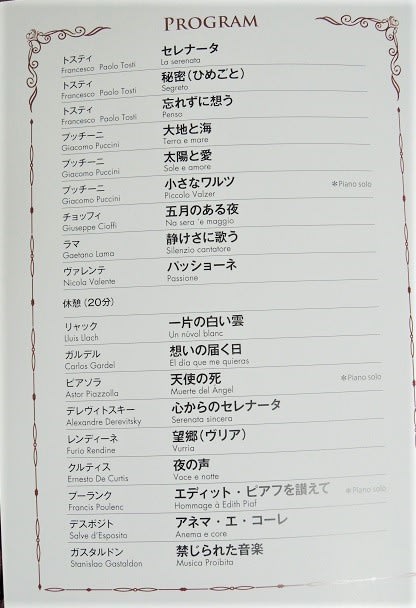 PROGRAM
トスティ セレナータ
Francesco Paolo Tosti La serenata
トスティ 秘密（ひめごと）
Francesco Paolo Tosti Segreto
トスティ 忘れずに想う
Francesco Paolo Tosti Penso
プッチーニ 大地と海
Giacomo Puccini Terra e mare
プッチーニ 太陽と愛
Giacomo Puccini Sole e amore
プッチーニ 小さなワルツ ＊Piano solo
Giacomo Puccini Piccolo Valzer
チョッフィ 五月のある夜
Giuseppe Cioffi Na sera 'e maggio
ラマ 静けさに歌う
Gaetano Lama Silenzio cantatore
ヴァレンテ パッショーネ
Nicola Valente Passione
休憩（20分）
リャック 一片の白い雲
Lluis Llach Un núvol blanc
ガルデル 想いの届く日
Carlos Gardel El día que me quieras
ピアソラ 天使の死 ＊Piano solo
Astor Piazzolla Muerte del Ángel
デレヴィトスキー 心からのセレナータ
Alexandre Derevitsky Serenata sincera
レンディーネ 望郷（ヴリア）
Furio Rendine Vurria
クルティス 夜の声
Ernesto De Curtis Voce e notte
プーランク エディット・ピアフを讃えて ＊Piano solo
Francis Poulenc Hommage à Edith Piaf
デスポジト アネマ・エ・コーレ
Salve d'Esposito Anema e core
ガスタルドン 禁じられた音楽
Stanislao Gastaldon Musica Proibita